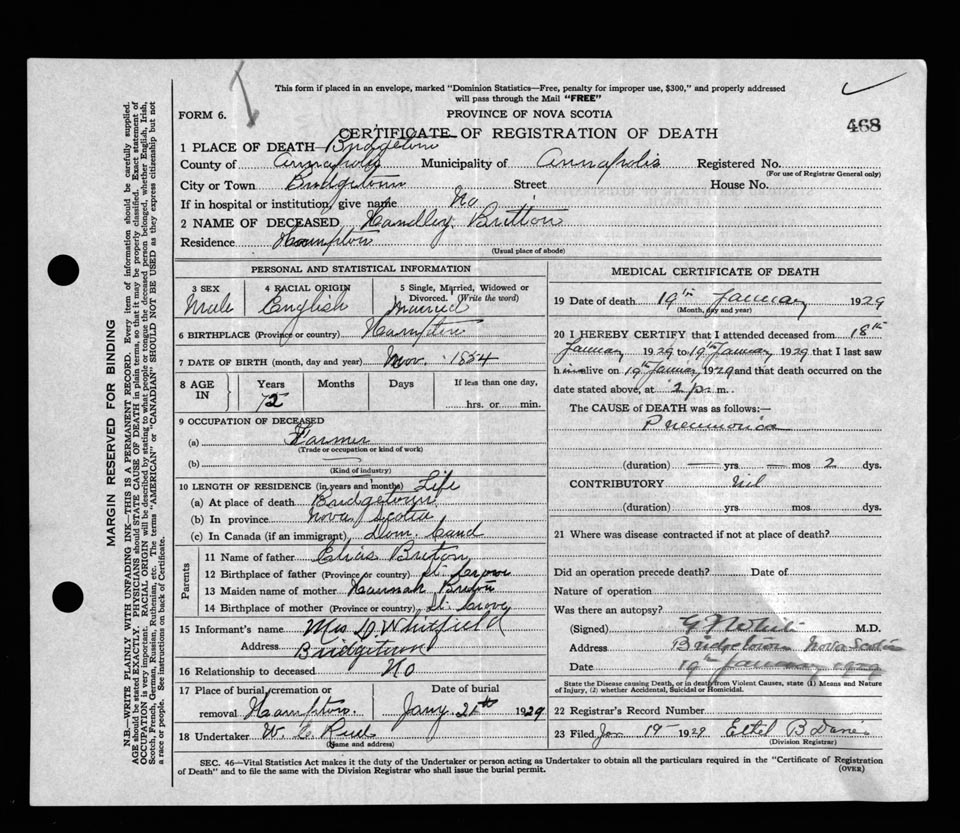 This form if placed in an envelope, marked "Dominion Statistics—Free, penalty for improper use, $300," and properly addressed
will pass through the Mail "FREE"
FORM 6.
PROVINCE OF NOVA SCOTIA
CERTIFICATE OF REGISTRATION OF DEATH
468
1 PLACE OF DEATH Bridgetown
County of Annapolis Municipality of Annapolis Registered No.
(For use of Registrar General only)
City or Town Bridgetown Street House No.
If in hospital or institution, give name No
2 NAME OF DECEASED Handley Britton
Residence Hampton
(Usual place of abode)
PERSONAL AND STATISTICAL INFORMATION
3 SEX 4 RACIAL ORIGIN 5 Single, Married, Widowed or Divorced. (Write the word)
Male English Married
6 BIRTHPLACE (Province or country) Hampton
7 DATE OF BIRTH (month, day and year) Nov. 1854
8 AGE IN Years Months Days If less than one day,
hrs. or min.
9 OCCUPATION OF DECEASED
(a) Farmer
(Trade or occupation or kind of work)
(b)
(Kind of industry)
10 LENGTH OF RESIDENCE (in years and months) Life
(a) At place of death Bridgetown
(b) In province Nova Scotia
(c) In Canada (if an immigrant) Dom. Cand
Parents
11 Name of father Elias Briton
12 Birthplace of father (Province or country) St.
13 Maiden name of mother Hannah
14 Birthplace of mother (Province or country) St.
15 Informant's name Mrs D Whitfield
Address Bridgetown
16 Relationship to deceased No
17 Place of burial, cremation or removal Hampton.
Date of burial Jany. 1929
18 Undertaker W.
(Name and address)
MEDICAL CERTIFICATE OF DEATH
19 Date of death 19th January 1929
(Month, day and year)
20 I HEREBY CERTIFY that I attended deceased from 18th
January 1929 to 19th January 1929 that I last saw
him alive on 19th January 1929 and that death occurred on the
date stated above, at 2 p. m.
The CAUSE of DEATH was as follows:—
Pneumonia
(duration) — yrs. — mos 2 dys.
CONTRIBUTORY Nil
(duration) yrs. mos. dys.
21 Where was disease contracted if not at place of death?
Did an operation precede death? Date of
Nature of operation
Was there an autopsy?
(Signed) M.D.
Address Bridgetown Nova Scotia
Date 19th January 1929
State the Disease causing Death, or in death from Violent Causes, state (1) Means and Nature
of Injury, (2) whether Accidental, Suicidal or Homicidal.
22 Registrar's Record Number
23 Filed Jan 19 1929 Ethel B
(Division Registrar)
SEC. 46—Vital Statistics Act makes it the duty of the Undertaker or person acting as Undertaker to obtain all the particulars required in the "Certificate of Registration
of Death" and to file the same with the Division Registrar who shall issue the burial permit.
(OVER)
MARGIN RESERVED FOR BINDING
N.B.—WRITE PLAINLY WITH UNFADING INK—THIS IS A PERMANENT RECORD. Every item of information should be carefully supplied.
AGE should be stated EXACTLY. PHYSICIANS should STATE CAUSE OF DEATH in plain terms, so that it may be properly classified. Exact statement of
OCCUPATION is very important. RACIAL ORIGIN will be described by stating to what people or tongue the deceased person belonged, whether English, Irish,
Scotch, French, German, Russian, Ruthenian, etc. The terms "AMERICAN" or "CANADIAN" SHOULD NOT BE USED as they express citizenship but not
a race or people. See instructions on back of Certificate.